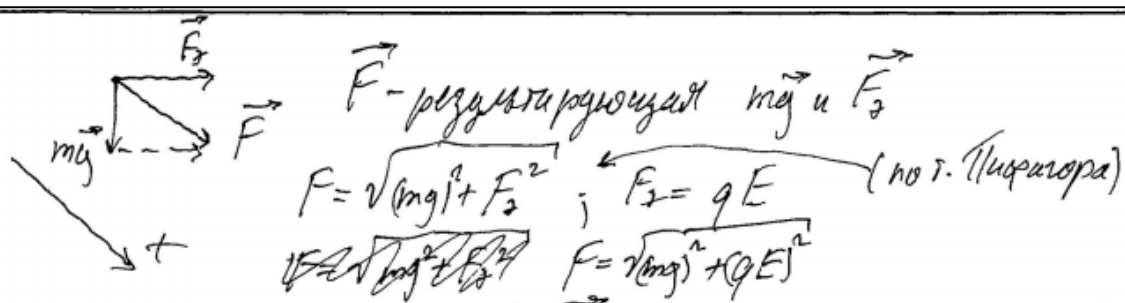 F⃗э
F⃗ - результирующая mg⃗ и F⃗э
mg⃗ F⃗
F = √((mg)² + F_э²) ; F_э = qE (по т. Пифагора)
F = √((mg)² + (qE)²)
+